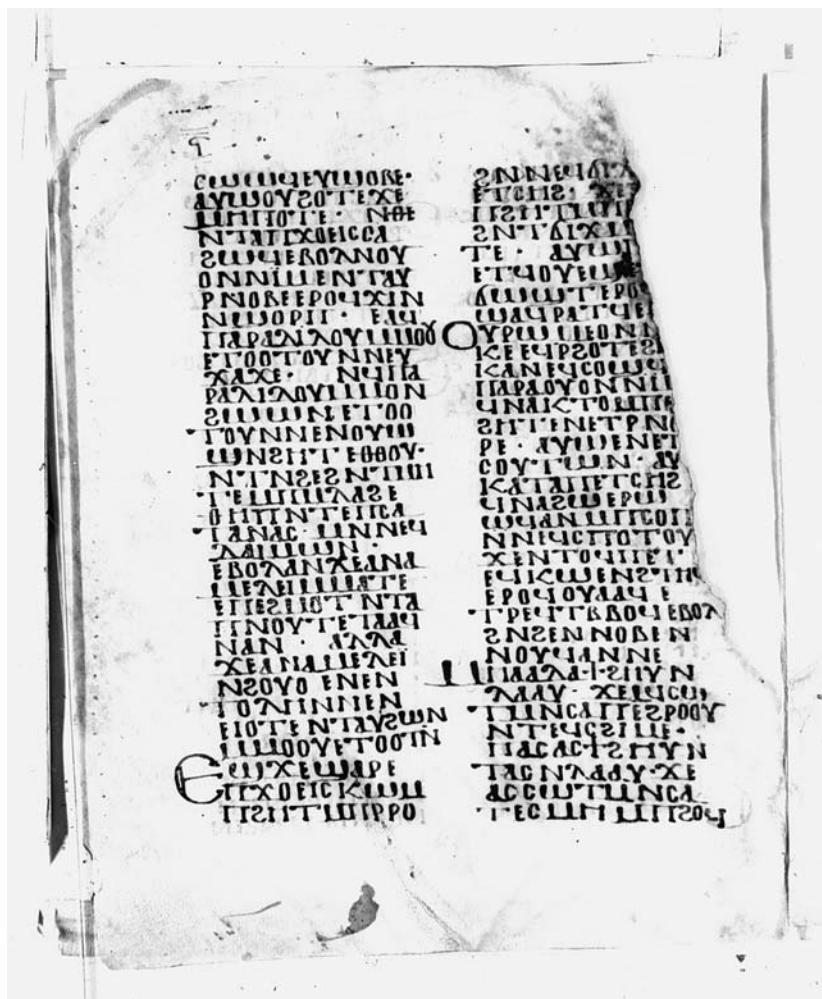 ϥ
ⲥⲱϣϥⲉⲩϣⲟⲃⲉ·
ⲁⲩⲱⲟⲩϩⲟⲧⲉϫⲉ
ⲙⲏⲡⲟⲧⲉ· ⲛⲑⲉ
ⲛⲧⲁⲡϫⲟⲉⲓⲥⲥⲁ
ϩⲱϥⲉⲃⲟⲗⲛⲟⲩ
ⲟⲛⲛⲓⲙⲉⲛⲧⲁⲩ
ⲣⲛⲟⲃⲉⲉⲣⲟϥϫⲓⲛ
ⲛϣⲟⲣⲡ· ⲉⲁϥ
ⲡⲁⲣⲁⲇⲓⲇⲟⲩⲙⲙⲟⲟⲩ
ⲉⲧⲟⲟⲧⲟⲩⲛⲛⲉⲩ
ϫⲁϫⲉ· ⲛϥⲡⲁ
ⲣⲁⲇⲓⲇⲟⲩⲙⲙⲟⲛ
ϩⲱⲱⲛⲉⲧⲟⲟ
ⲧⲟⲩⲛⲛⲉⲛⲟⲩⲱ
ⲱⲛϩⲏⲧⲉⲑⲟⲟⲩ·
ⲛⲧⲛϩⲉϩⲛⲧⲙⲏ
ⲧⲉⲙⲡⲙⲁⲁϩⲉ
ⲟⲙⲡⲛⲧⲉⲡⲥⲁ
ⲧⲁⲛⲁⲥ·ⲙⲛⲛⲉϥ
ⲇⲁⲓⲙⲱⲛ·
ⲉⲃⲟⲗⲁⲛϫⲉⲁⲛⲁ
ⲙⲉⲗⲉⲓⲙⲙⲁⲧⲉ
ⲉⲡⲉϩⲙⲟⲧ ⲛⲧⲁ
ⲡⲛⲟⲩⲧⲉⲧⲁⲁϥ
ⲛⲁⲛ· ⲁⲗⲗⲁ
ϫⲉⲁⲛⲁⲙⲉⲗⲉⲓ
ⲛϩⲟⲩⲟ ⲉⲛⲉⲛ
ⲧⲟⲗⲏⲛⲛⲉⲛ
ⲉⲓⲟⲧⲉⲛⲧⲁⲩϩⲱⲛ
ⲙⲙⲟⲟⲩⲉⲧⲟⲟⲧⲛ
ⲉϣϫⲉϣⲁⲣⲉ
ⲡϫⲟⲉⲓⲥⲕⲱⲙ
ⲡϩⲏⲧⲙⲡⲣⲣⲟ
ϩⲛⲛⲉϥϭⲓϫ
ⲉⲧⲥⲏϩ· ϫⲉ
ⲡϩⲏⲧⲙⲡ
ϩⲛⲧϭⲓϫⲙ
ⲧⲉ· ⲁⲩⲱ
ⲉⲧϥⲟⲩⲉϣ
ϭⲱϣⲧⲉⲣⲟ
ϣⲁϥⲣⲁⲧϥⲉ
ⲟⲩⲣⲱⲙⲉⲟⲛⲛ
ⲕⲉⲉϥⲣϩⲟⲧⲉϩ
ⲕⲁⲛⲉϥⲥⲟϣϥ
ⲡⲁⲣⲁⲟⲩⲟⲛⲛⲓⲙ
ϥⲛⲁⲕⲧⲟⲙⲡⲉ
ϩⲏⲧⲉⲛⲉⲧⲣⲛⲟ
ⲣⲉ· ⲁⲩⲱⲉⲛⲉⲧ
ⲥⲟⲩⲧⲱⲛ· ⲁⲩ
ⲕⲁⲧⲁⲡⲉⲧⲥⲏϩ
ϥⲛⲁϩⲱⲉⲣⲱ
ⲱϥⲁⲛⲙⲡⲥⲟⲡ
ⲛⲛⲉϥⲥⲡⲟⲧⲟⲩ
ϫⲉⲛⲧⲟϥⲡⲉⲧ
ⲉϥⲕⲱⲉⲛϩⲧⲏ
ⲉⲣⲟϥⲟⲩⲁⲁϥ ⲉ
ⲧⲣⲉϥⲧⲃⲃⲟϥⲉⲃⲟⲗ
ϩⲛϩⲉⲛⲛⲟⲃⲉⲛ
ⲛⲟⲩϥⲁⲛⲛⲉ
ⲙⲡⲁⲗⲁϯϩⲏⲩⲛ
ⲗⲁⲁⲩ· ϫⲉⲙϥⲥⲱ
ⲧⲙⲛⲥⲁⲡⲉϩⲣⲟⲟⲩ
ⲛⲧⲉϥϩⲓⲙⲉ·
ⲙⲡⲥⲁⲥϯϩⲏⲩⲛ
ⲧⲁⲥⲛⲗⲁⲁⲩ·ϫⲉ
ⲁⲥⲥⲱⲧⲙⲛⲥⲁ
ⲧⲉⲥⲙⲏⲙⲡϩⲟϥ